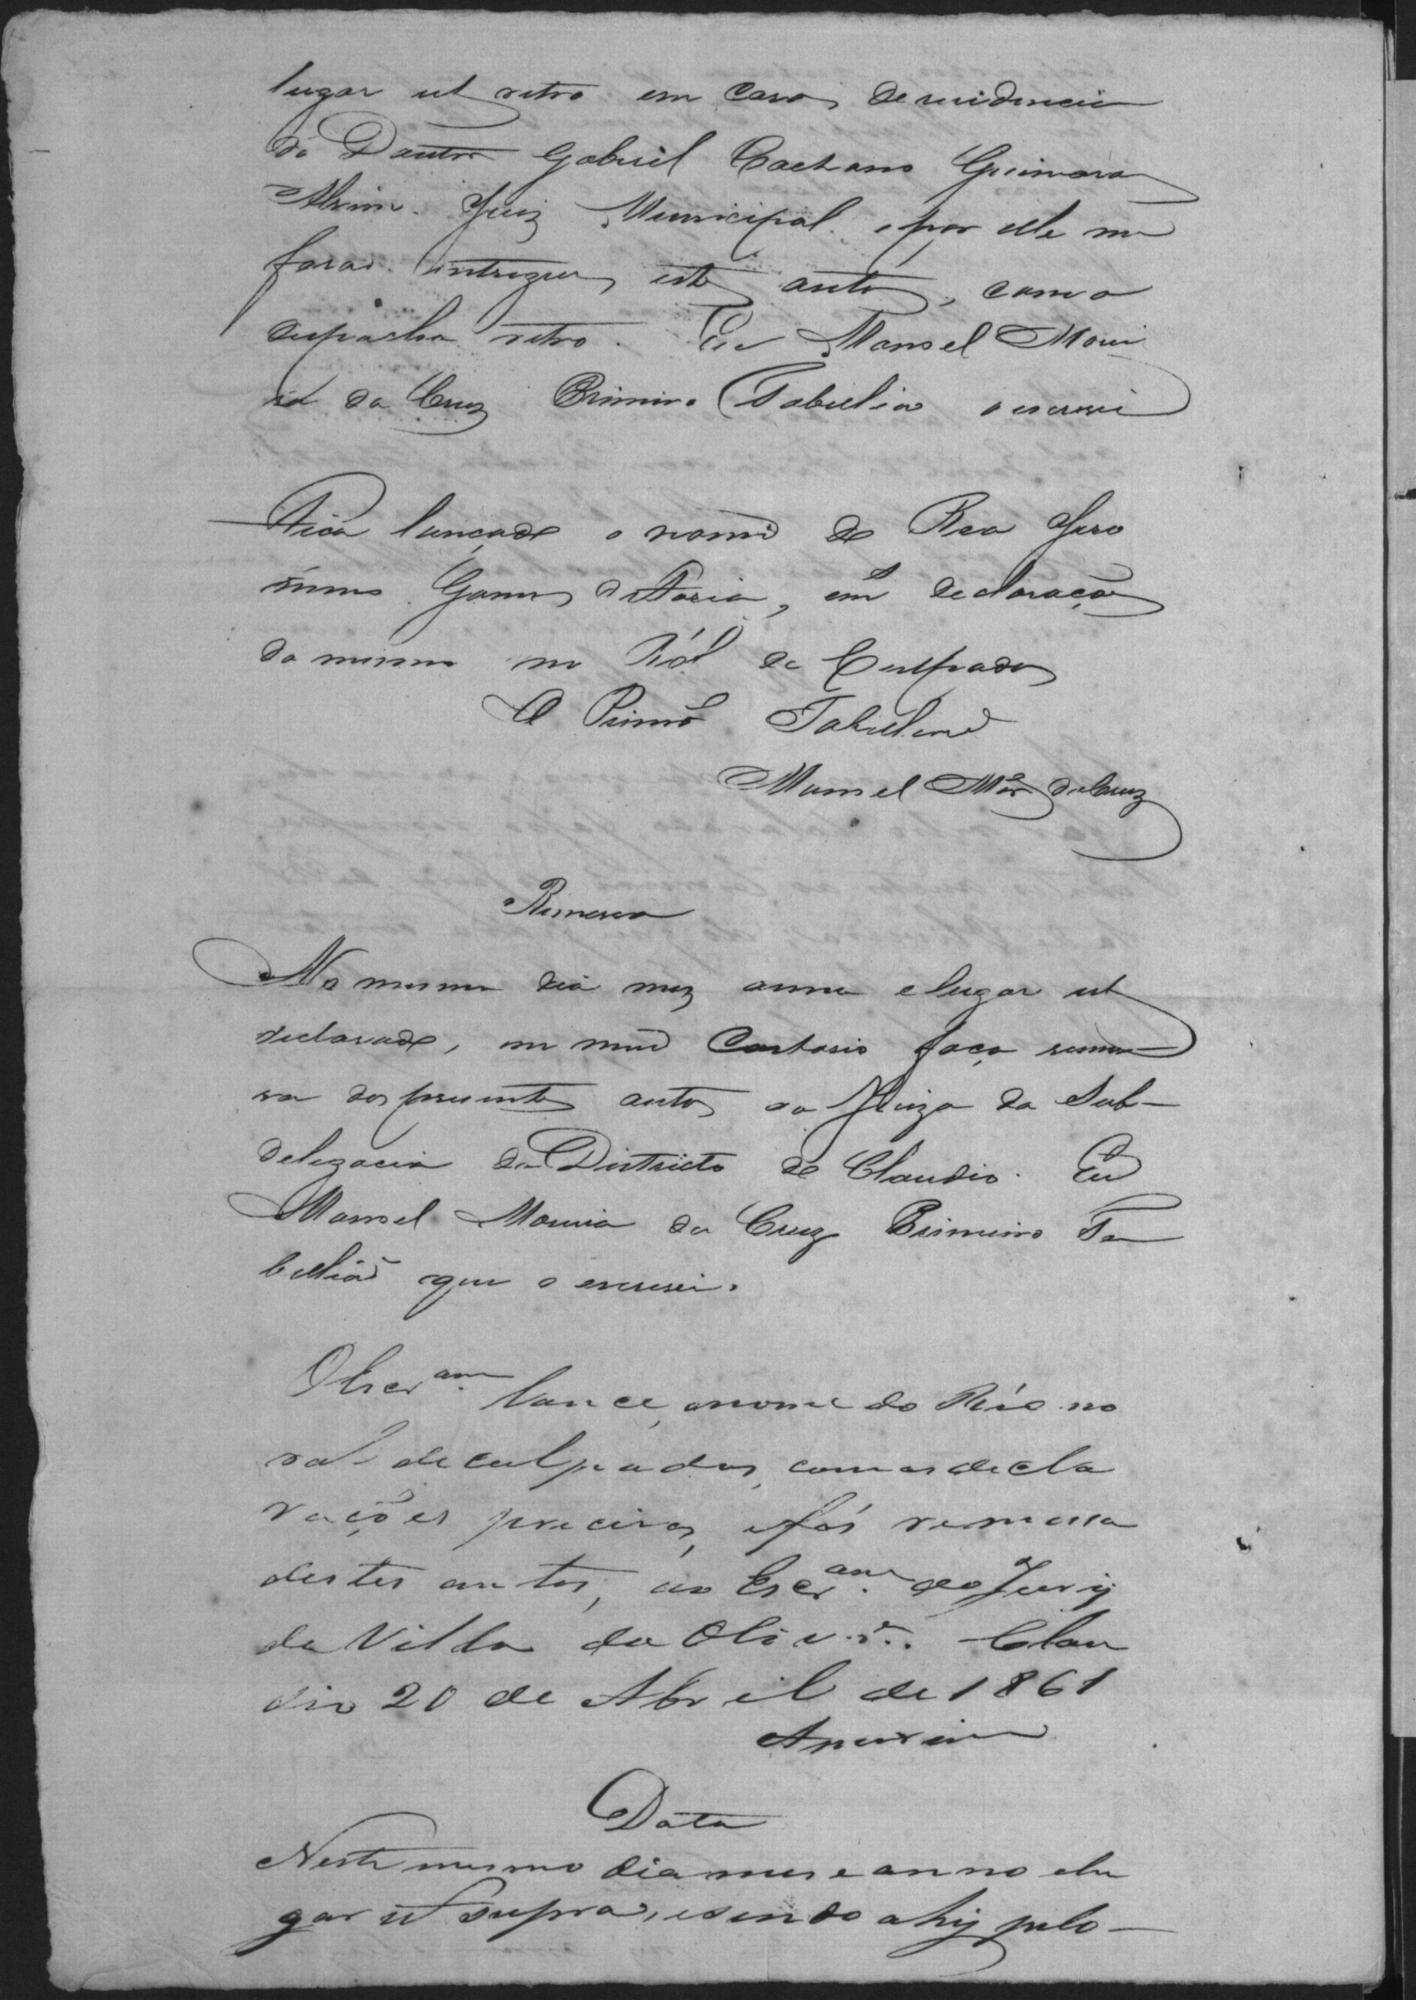 lugar ut retro em casa de residencia
do Doutor Gabriel Caetano Guimarães
Alvim. Juiz Municipal. e por elle me
forão entregues estes autos, com o
despacho retro. Eu Manoel Morei
ra da Cruz Primeiro Tabelião o escrevi
Fica lançado o nome do Reo Jero
nimo Gomes de Faria, em declaração
do mesmo no Ról de Culpados
O Primrº Tabelião
Manoel Mor.ª da Cruz
Remessa
No mesmo dia mez anno e lugar ut
declarado, em meu Cartorio faço remes
sa dos presentes autos ao Juizo da Sub-
delegacia do Districto de Claudio. Eu
Manoel Moreira da Cruz Primeiro Ta
bellião que o escrevi.
O Escr.am lance o nome do Réo no
rol de culpados, com as decla
rações precizas, e fás remessa
destes autos, ao Escr.am do Jury
da Villa da Oliv.rª. Clau
dio 20 de Abril de 1861
Data
Neste mesmo dia mes e anno e lu
gar ut supra, e sendo ahy pelo